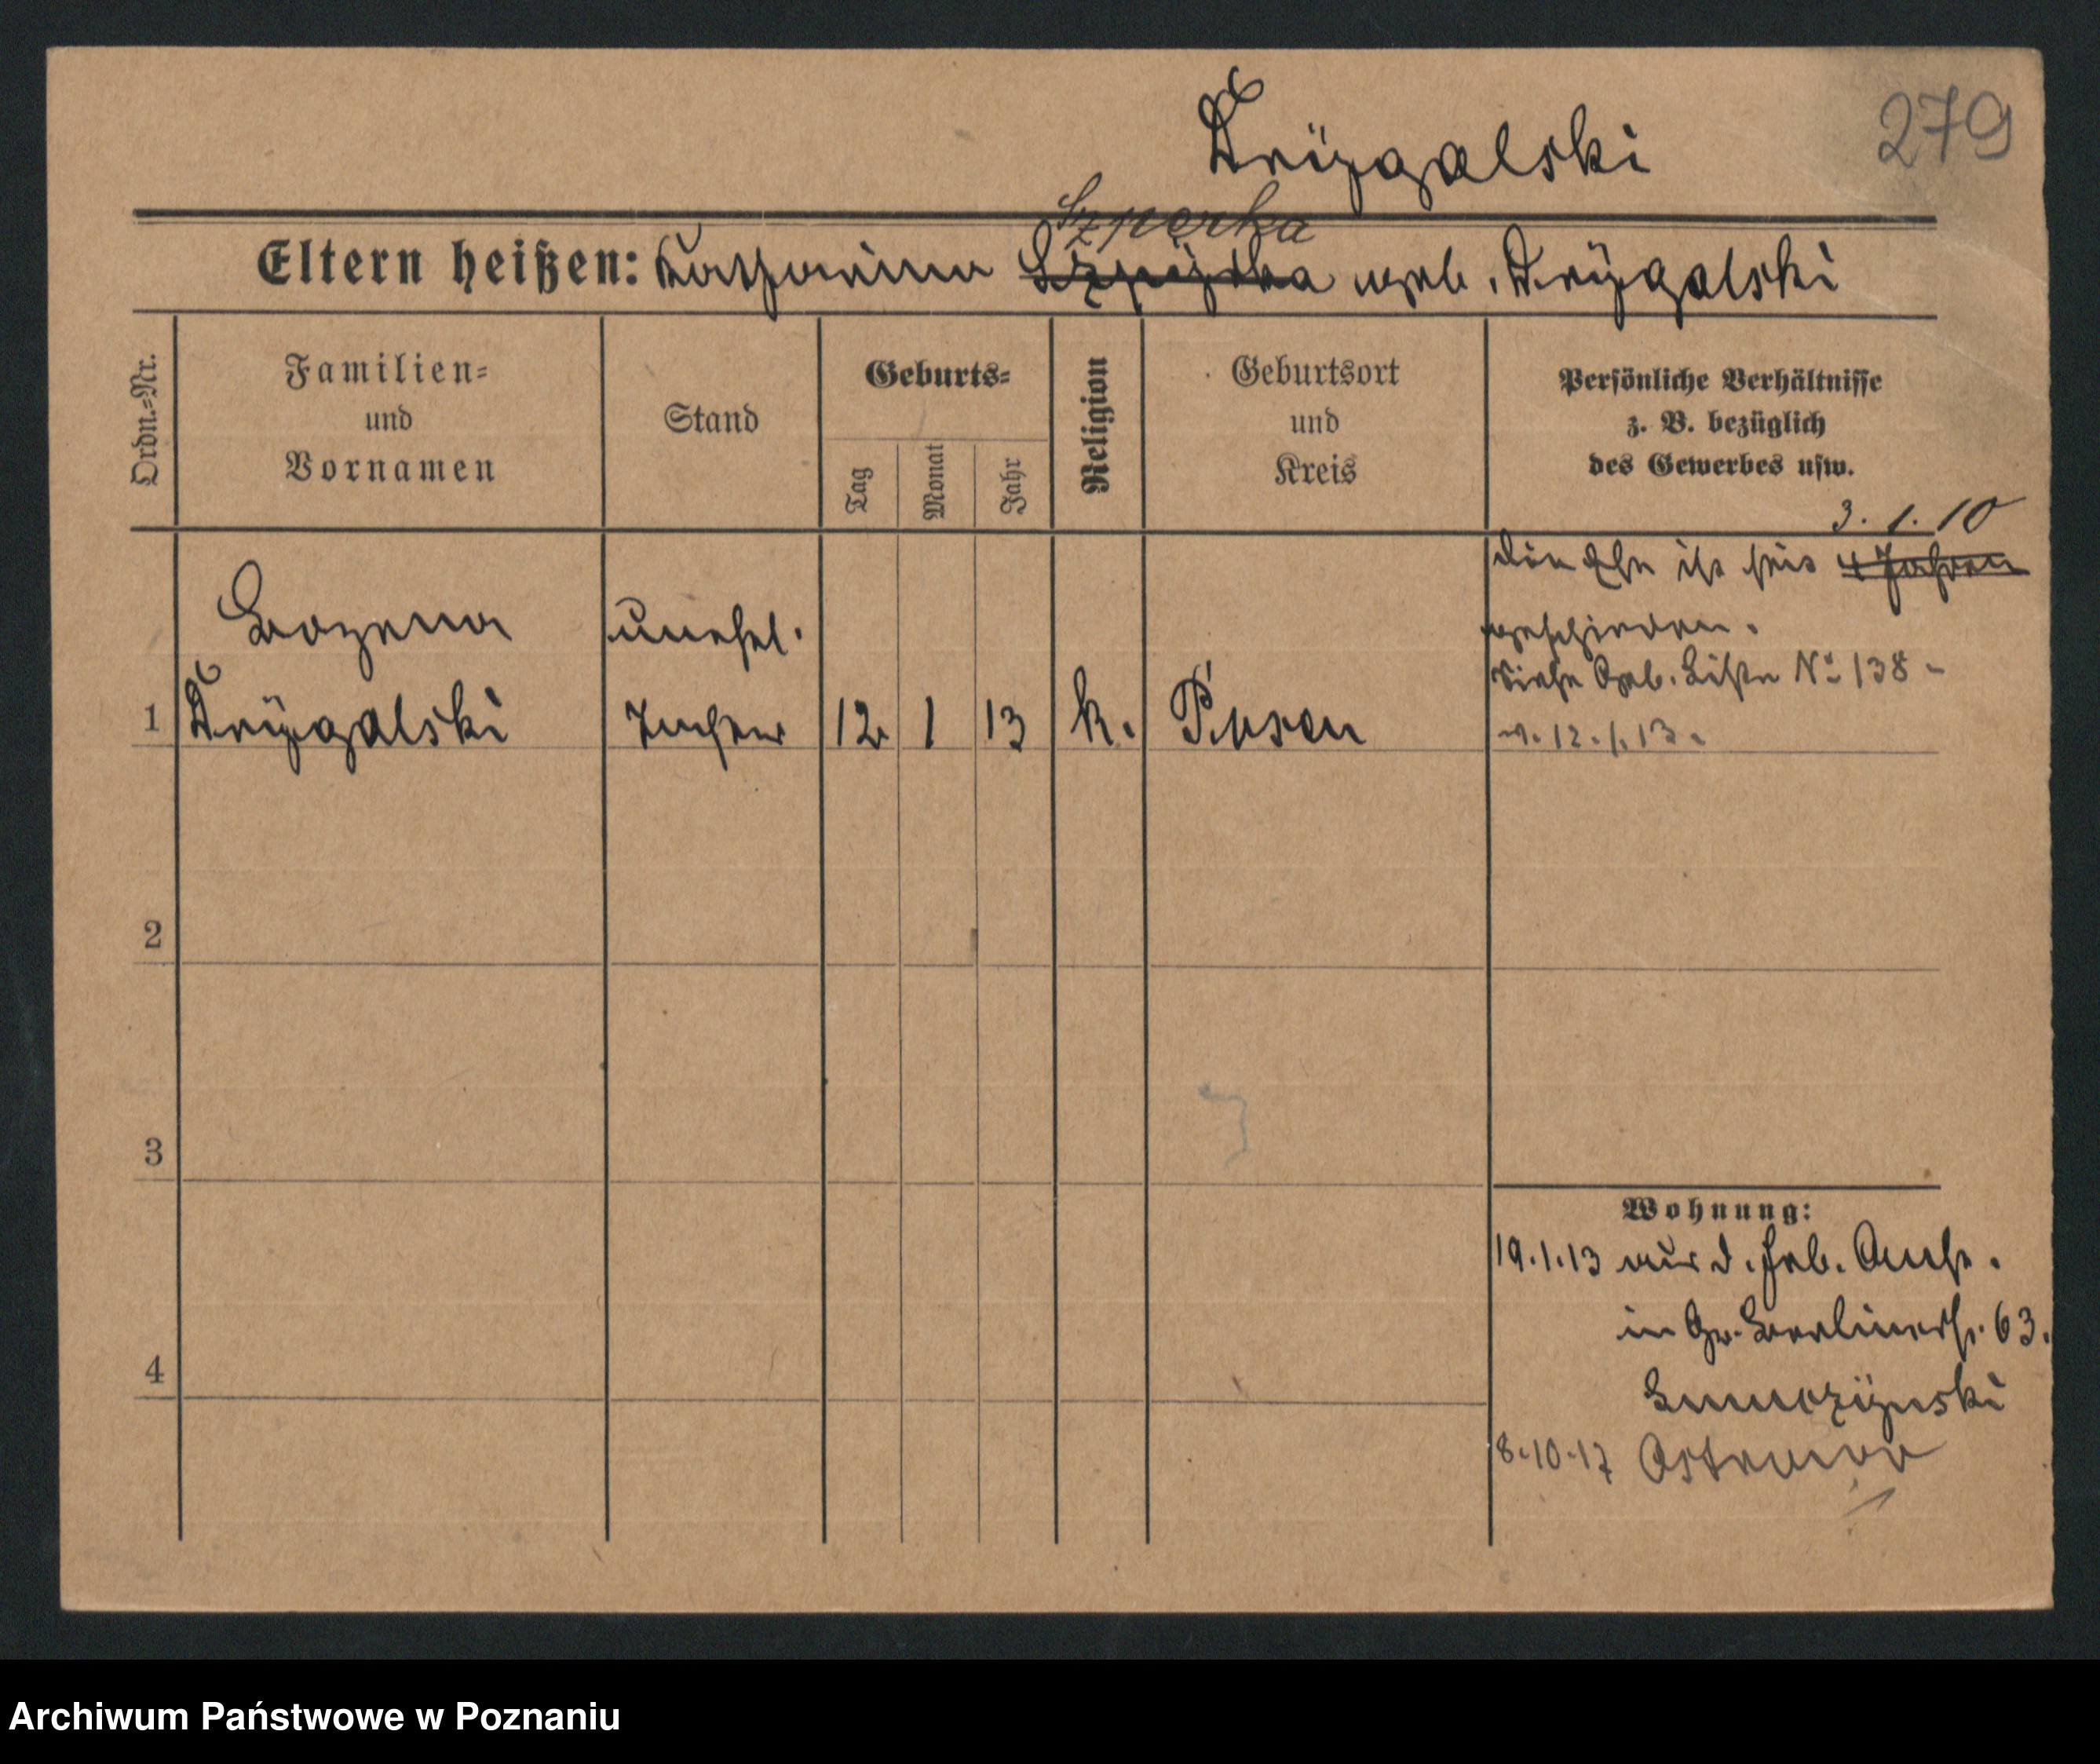 Drÿgalski
279
Szperka
Eltern heißen: Katharina geb. Drÿgalski
Ordn.=Nr.
Familien=
und
Vornamen
Stand
Geburts=
Tag
Monat
Jahr
Religion
Geburtsort
und
Kreis
Persönliche Verhältnisse
z. B. bezüglich
des Gewerbes usw.
3. 1. 10
die Ehe ist seit 4 Jahren
geschieden.
Siehe Geb. Liste No 138 -
v. 12.1.13.
Bozena unehel.
1 Drÿgalski Tochter 12 1 13 k. Posen
2
3
4
Wohnung:
19.1.13 aus d. Heb. Anst.
in Gr. Berlinerstr. 63.
8.10.17 Ostrowo
Archiwum Państwowe w Poznaniu